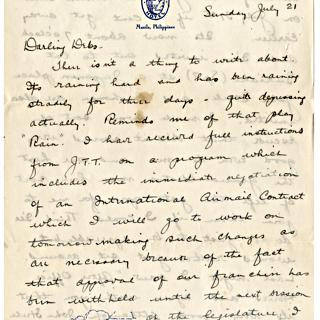 Manila, Philippines
Sunday July 21
Darling Debs-
There isn't a thing to write about.
Its raining hard and has been raining
steadily for three days - quite depressing
actually. Reminds me of that play
"Rain". I have received full instructions
from J.T.T. on a program which
includes the immediate negotiation
of an International Airmail Contract
which I will go to work on
tomorrow making such changes as
are necessary because of the fact
that approval of our franchise has
been withheld until the next session
of the legislature. I